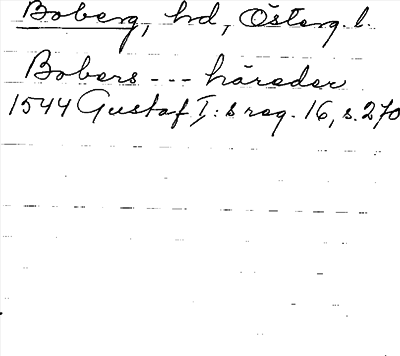 Boberg, hd, Österg. l.
Bobers --- häreder
1544 Gustaf I:s reg. 16, s. 270